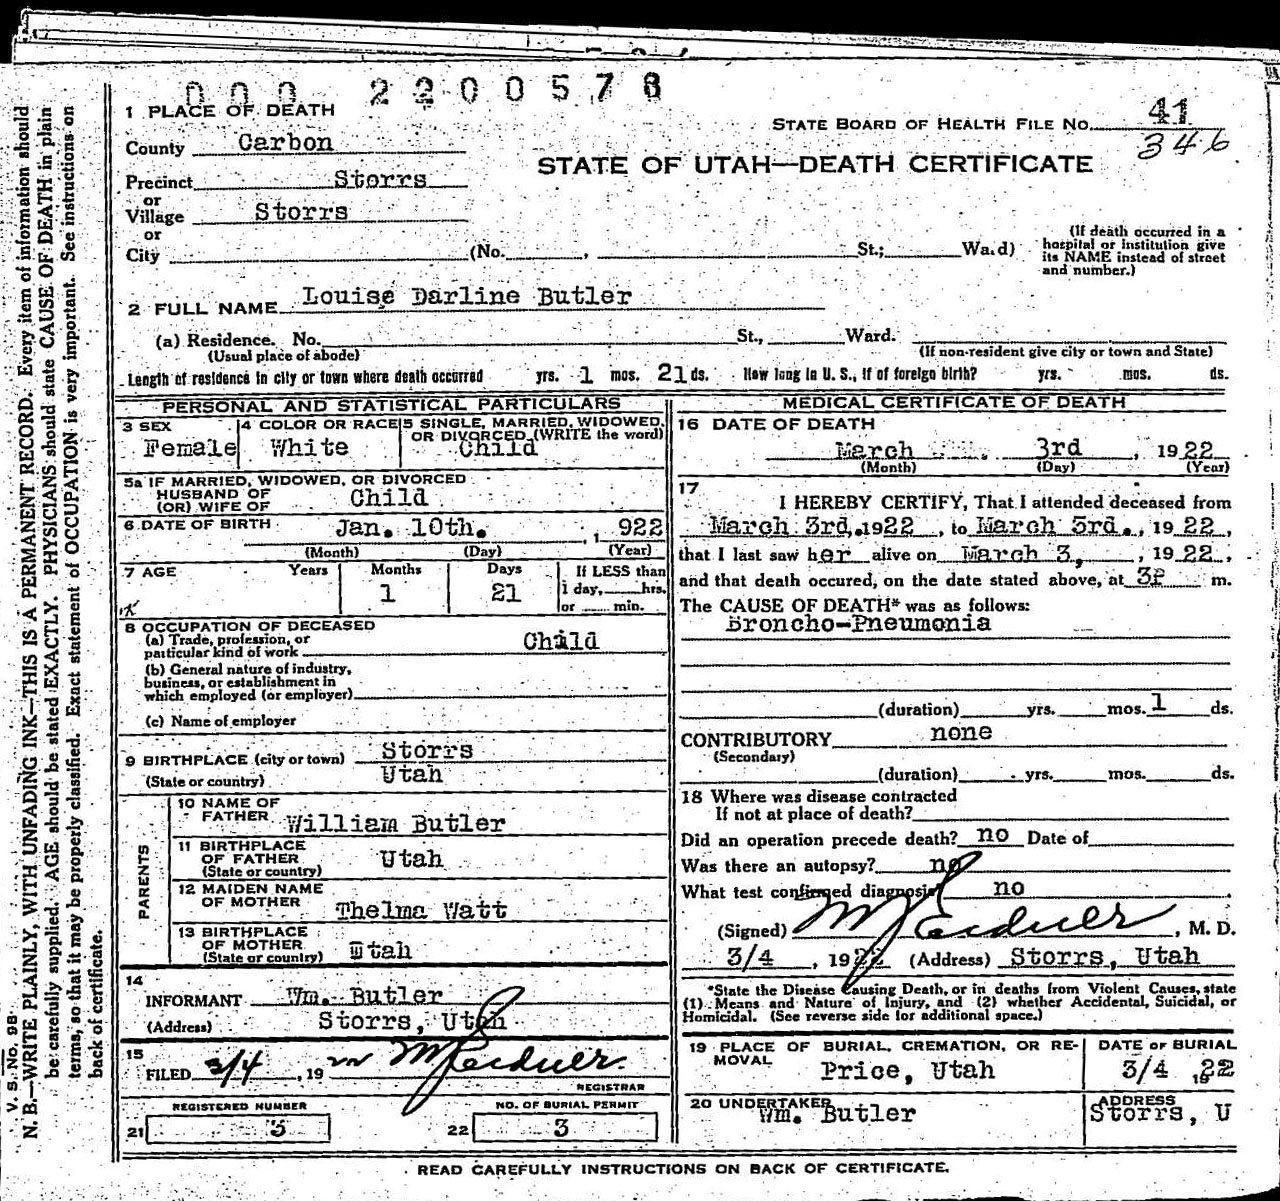 000 2200576
1 PLACE OF DEATH
STATE BOARD OF HEALTH FILE No. 41
346
County Carbon
STATE OF UTAH—DEATH CERTIFICATE
Precinct Storrs
or
Village Storrs
or
City (No. , St.; Wa.d)
(If death occurred in a
hospital or institution give
its NAME instead of street
and number.)
2 FULL NAME Louise Darline Butler
(a) Residence. No. St., Ward.
(Usual place of abode) (If non-resident give city or town and State)
Length of residence in city or town where death occurred yrs. 1 mos. 21 ds. How long in U. S., if of foreign birth? yrs. mos. ds.
PERSONAL AND STATISTICAL PARTICULARS
3 SEX
Female
4 COLOR OR RACE
White
5 SINGLE, MARRIED, WIDOWED,
OR DIVORCED (WRITE the word)
Child
5a IF MARRIED, WIDOWED, OR DIVORCED
HUSBAND OF
(OR) WIFE OF Child
6 DATE OF BIRTH Jan. 10th. , 922
(Month) (Day) (Year)
7 AGE Years Months Days If LESS than
1 21 1 day, hrs.
or min.
8 OCCUPATION OF DECEASED
(a) Trade, profession, or
particular kind of work Child
(b) General nature of industry,
business, or establishment in
which employed (or employer)
(c) Name of employer
9 BIRTHPLACE (city or town) Storrs
(State or country) Utah
PARENTS
10 NAME OF
FATHER William Butler
11 BIRTHPLACE
OF FATHER Utah
(State or country)
12 MAIDEN NAME
OF MOTHER Thelma Watt
13 BIRTHPLACE
OF MOTHER Utah
(State or country)
14
INFORMANT Wm. Butler
(Address) Storrs, Utah
15
FILED 3/4, 19 22
REGISTRAR
REGISTERED NUMBER NO. OF BURIAL PERMIT
21 3 22 3
MEDICAL CERTIFICATE OF DEATH
16 DATE OF DEATH
March 3rd , 1922
(Month) (Day) (Year)
17
I HEREBY CERTIFY, That I attended deceased from
March 3rd, 1922, to March 3rd., 1922,
that I last saw her alive on March 3, , 1922,
and that death occured, on the date stated above, at 3P m.
The CAUSE OF DEATH* was as follows:
Broncho-Pneumonia
(duration) yrs. mos. 1 ds.
CONTRIBUTORY none
(Secondary)
(duration) yrs. mos. ds.
18 Where was disease contracted
If not at place of death?
Did an operation precede death? no Date of
Was there an autopsy? no
What test confirmed diagnosis? no
(Signed) , M. D.
3/4 , 1922 (Address) Storrs, Utah
*State the Disease Causing Death, or in deaths from Violent Causes, state
(1) Means and Nature of Injury, and (2) whether Accidental, Suicidal, or
Homicidal. (See reverse side for additional space.)
19 PLACE OF BURIAL, CREMATION, OR RE-
MOVAL Price, Utah
DATE OF BURIAL
3/4 1922
20 UNDERTAKER
Wm. Butler
ADDRESS
Storrs, U
READ CAREFULLY INSTRUCTIONS ON BACK OF CERTIFICATE.
V. S. No. 98
N. B.—WRITE PLAINLY, WITH UNFADING INK—THIS IS A PERMANENT RECORD. Every item of information should
be carefully supplied. AGE should be stated EXACTLY. PHYSICIANS should state CAUSE OF DEATH in plain
terms, so that it may be properly classified. Exact statement of OCCUPATION is very important. See instructions on
back of certificate.